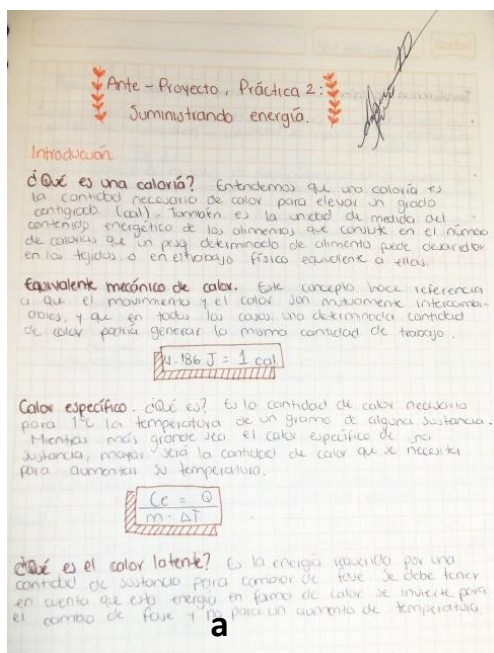 Ante - Proyecto, Práctica 2:
Suministrando energía.
Introducción
¿Qué es una caloría? Entendemos que una caloría es
la cantidad necesaria de calor para elevar un grado
centigrado (cal). También es la unidad de medida del
contenido energético de los alimentos que consiste en el número
de calorías que un peso determinado de alimento puede desarrollar
en los tejidos, o en el trabajo físico equivalente a ellas.
Equivalente mecánico de calor. Este concepto hace referencia
a que el movimiento y el calor son mutuamente intercambi-
ables, y que en todos los casos, una determinada cantidad
de calor podría generar la misma cantidad de trabajo.
4.186 J = 1 cal
Calor específico. ¿Qué es? Es la cantidad de calor necesario
para 1°C la temperatura de un gramo de alguna sustancia.
Mientras más grande sea el calor específico de una
sustancia, mayor será la cantidad de calor que se necesita
para aumentar su temperatura.
Ce = Q
m · ΔT
¿Qué es el calor latente? Es la energía requerida por una
cantidad de sustancia para cambiar de fase. Se debe tener
en cuenta que esta energía en forma de calor se invierte para
el cambio de fase y no para un aumento de temperatura
a